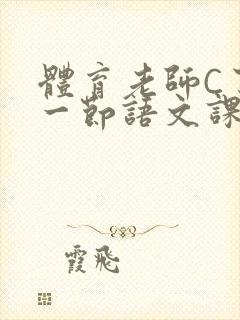 體育老師C
一節語文課
霞飛